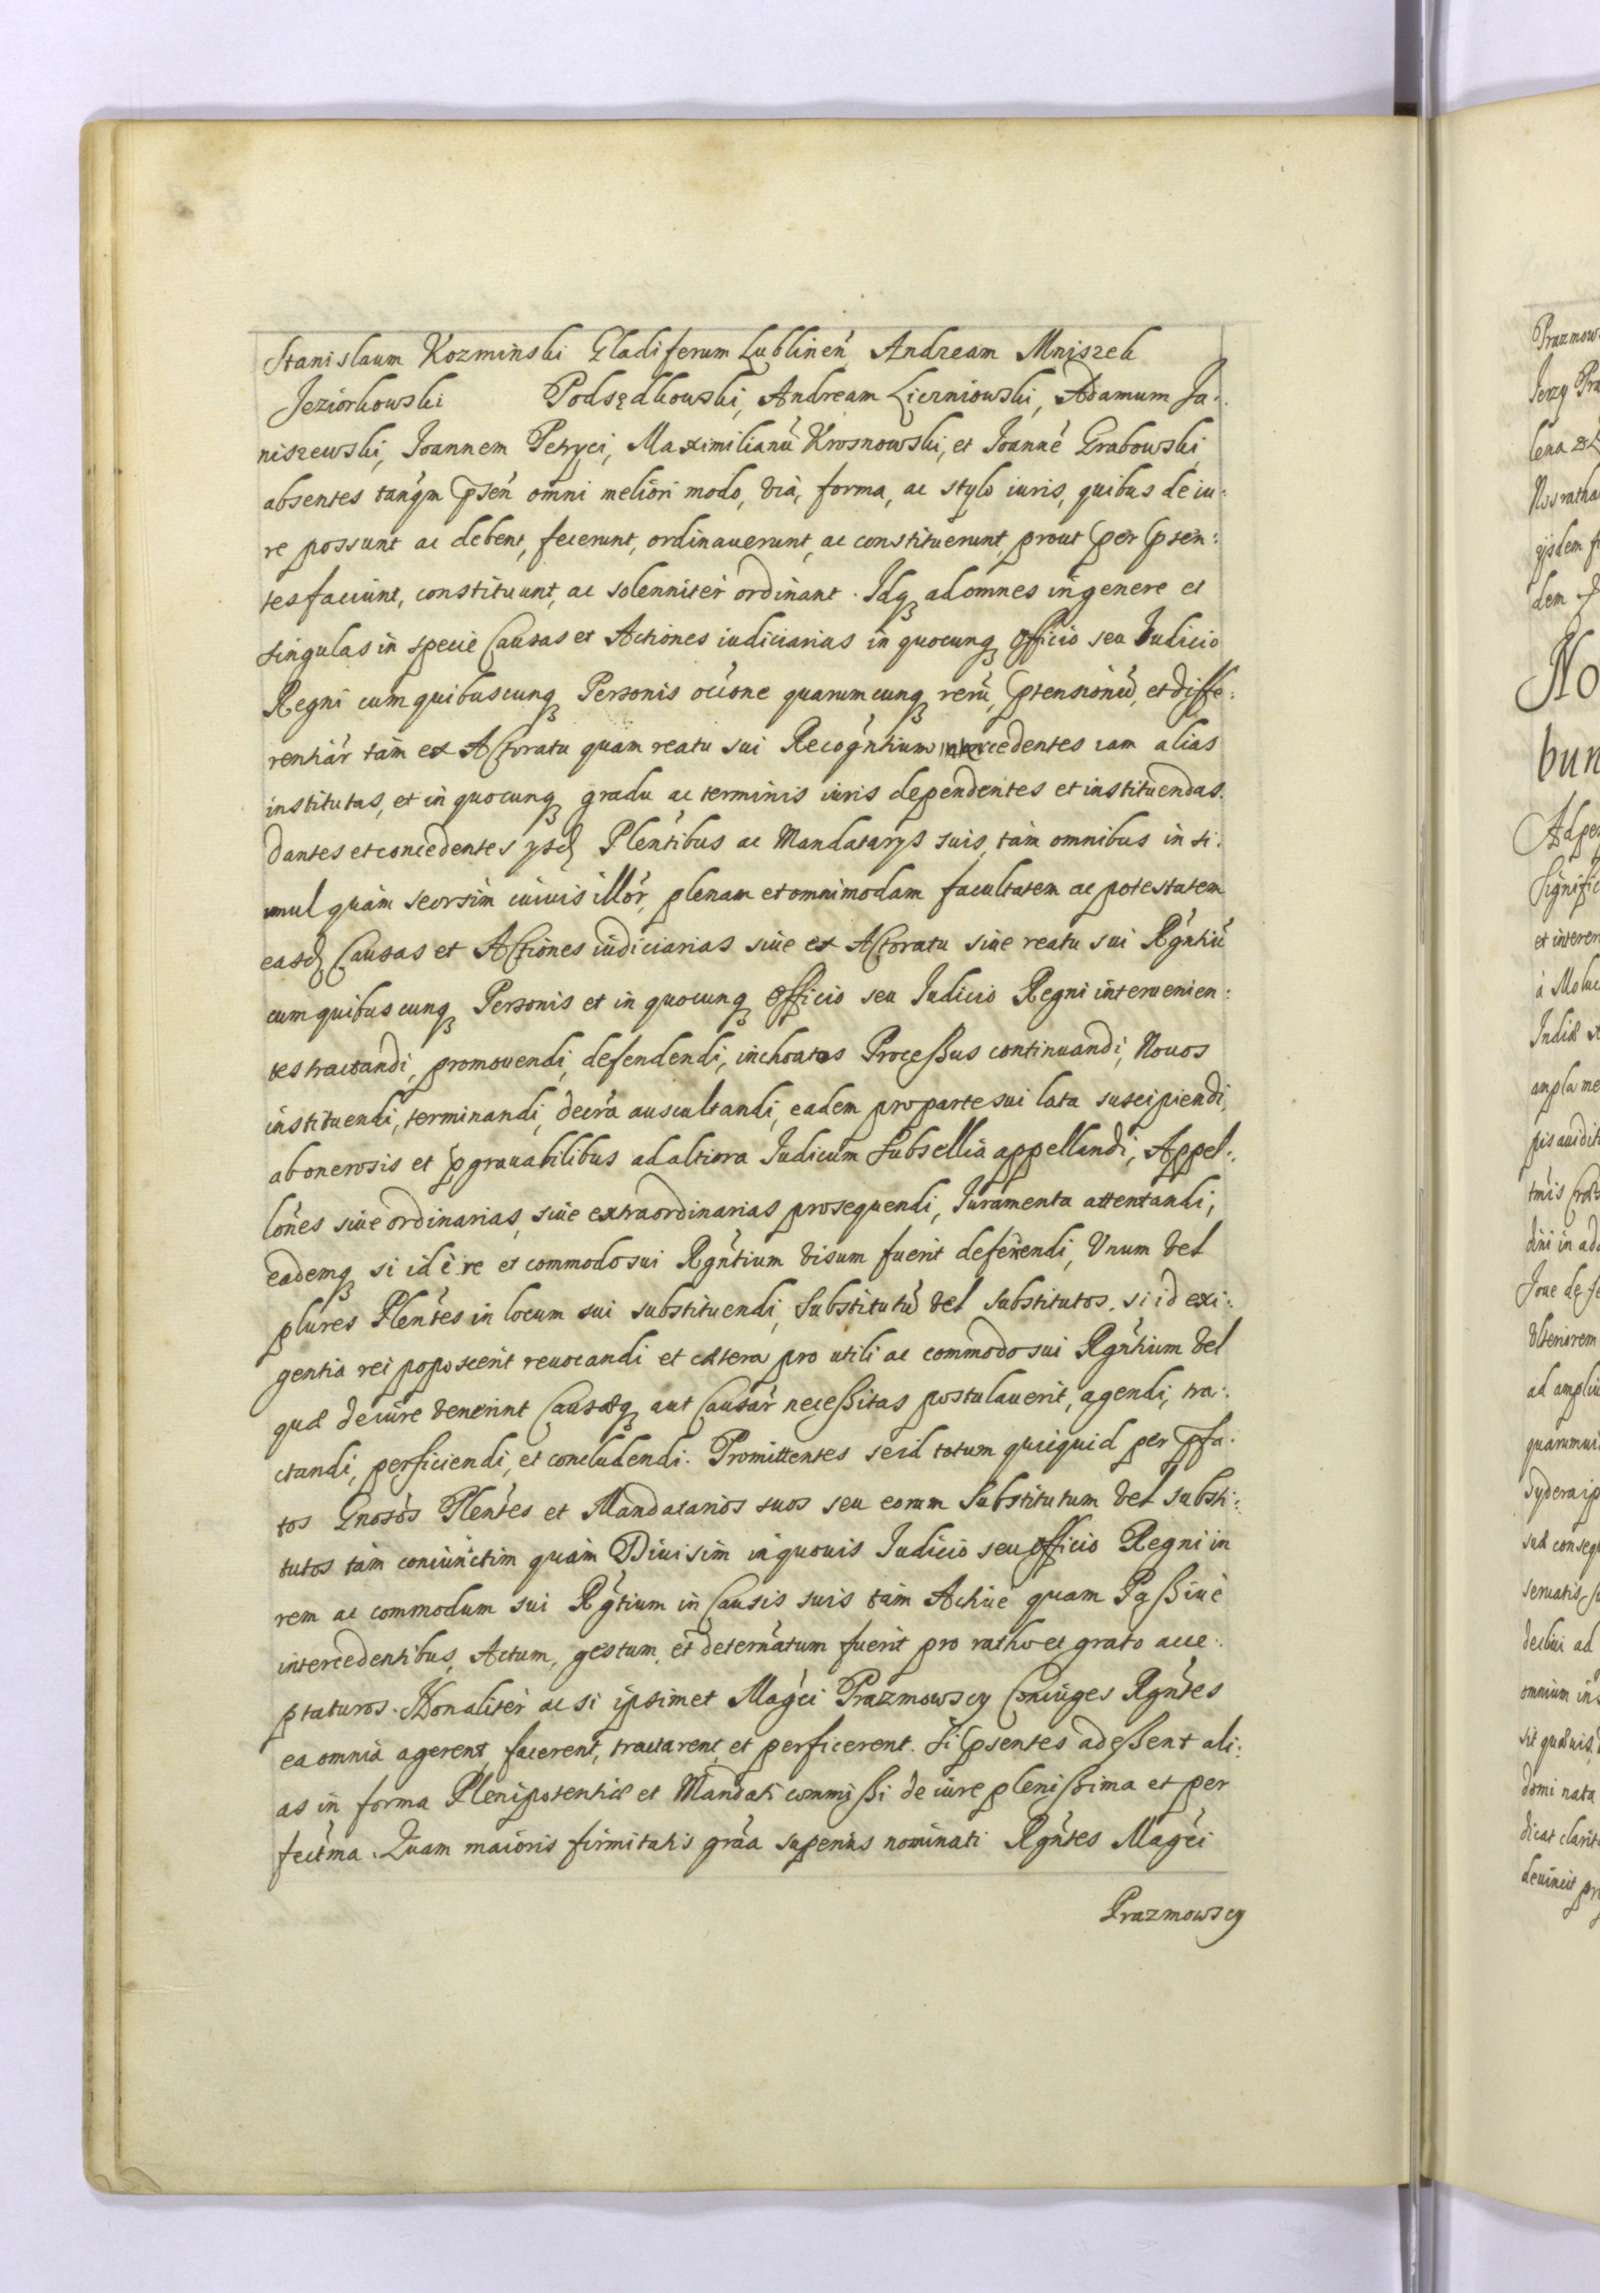 Stanislaum Kozminski Gladiferum Lublineñ Andream Mniszek
Jeziorkowski Podsędkowski, Andream Cierniowski, Adamum Ja:
niszewski, Joannem Petryci, Maximilianũ Krosnowski, et Joannẽ Grabowski
absentes tanq̃m p̃señ omni meliori modo, via, forma, ac stylo iuris, quibus de iu:
re possunt ac debent, fecerunt, ordinauerunt, ac constituerunt, prout per p̃sen:
tes faciunt, constituunt, ac solenniter ordinant. Idq̃ ad omnes in genere et
singulas in specie Causas et Actiones iudiciarias in quocunq̃ Officio seu Iudicio
Regni cum quibuscunq̃ Personis occ̃one quarumcunq̃ rerũ, p̃tensionũ, et diffe:
rentiar̃ tam ex Actoratu quam reatu sui Recog̃ntium intercedentes iam alias
institutas, et in quocunq̃ gradu ac terminis iuris dependentes et instituendas.
dantes et concedentes ysd̃ Plen̄tibus ac Mandatarys suis, tam omnibus in si:
mul quàm seorsim cuiuis illor̃, plenam et omnimodam facultatem ac potestatem
easd̃ Causas et Actiones iudiciarias siue ex Actoratu siue reatu sui Rg̃ntiũ
cum quibuscunq̃ Personis et in quocunq̃ Officio seu Iudicio Regni interuenien:
tes tractandi, promouendi, defendendi, inchoatos Processus continuandi, Nouos
instituendi, terminandi, decr̃a auscultandi, eadem pro parte sui lata suscipiendi,
ab onerosis et p̃grauabilibus ad altiora Iudicum Subsellia appellandi, Appel:
loñes siue ordinarias, siue extraordinarias prosequendi, Iuramenta attentandi,
eademq̃ si id è re et commodo sui Rg̃ntium visum fuerit deferendi, Unum vel
plures Plen̄tes in locum sui substituendi, Substitutũ vel substitutos, si id exi:
gentia rei poposcerit reuocandi et cætera pro utili ac commodo sui Rg̃ntium vel
quæ de iure venerint Causæq̃ aut Causar̃ necessitas postulauerit, agendi, tra:
ctandi, perficiendi, et concludendi. Promittentes se id totum quicquid per p̃fa:
tos Gnosõs Plen̄tes et Mandatarios suos seu eorum Substitutum vel substi:
tutos tàm coniunctim quàm Diuisim in quouis Iudicio seu officio Regni in
rem ac commodum sui Rg̃tium in Causis suis tàm Actiuè quam Passiuè
intercedentibus, Actum, gestum, et deterñatum fuerit pro ratho et grato acce:
ptaturos. Non aliter ac si ipsimet Mag̃ci Prazmowscy Coniuges Rg̃ntes
ea omnia agerent, facerent, tractarent, et perficerent. Si p̃sentes adessent ali:
as in forma Plenipotentiæ et Mandati commissi de iure plenissima et per
fect̃ma. Quam maioris firmitatis grãa superius nominati Rg̃ntes Mag̃ci
Prazmowscy